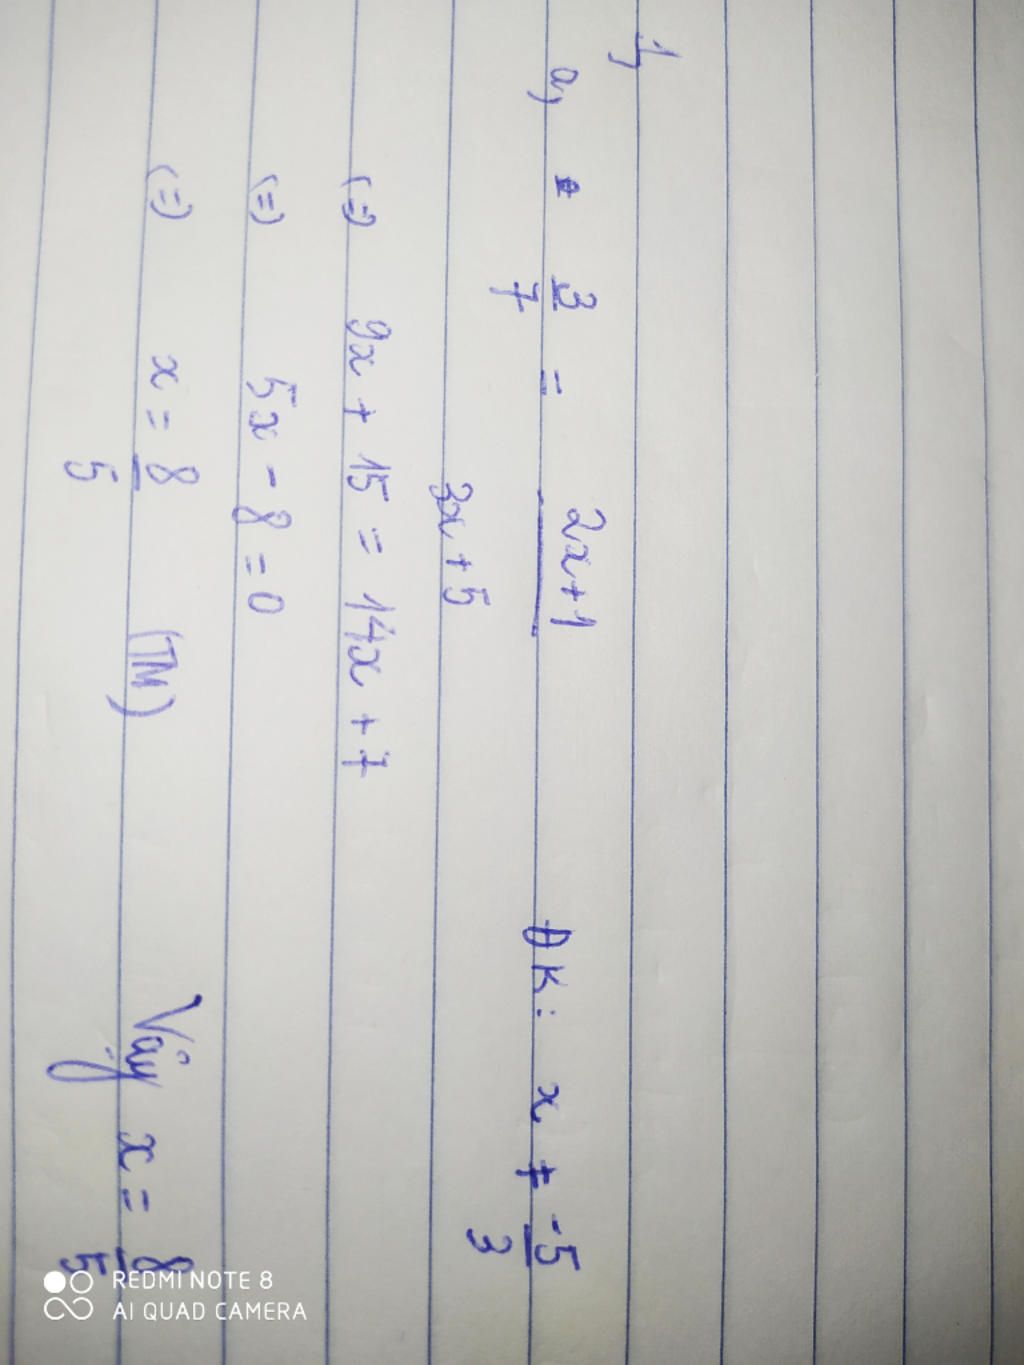 1,
a, 3/7 = 2x+1/3x+5 ĐK: x ≠ -5/3
(=) 9x + 15 = 14x + 7
(=) 5x - 8 = 0
(=) x = 8/5 (TM) Vậy x = 8/5
REDMI NOTE 8
AI QUAD CAMERA